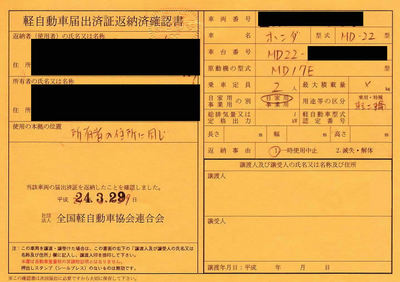 軽自動車届出済証返納済確認書
返納者（使用者）の氏名又は名称
住 所
所有者の氏名又は名称
住 所
使用の本拠の位置
所有者の住所に同じ
当該車両の届出済証を返納したことを確認しました。
平成 24.3.29
社団法人 全国軽自動車協会連合会
注）この車両を譲渡・譲受けた場合は、この書面の右下の「譲渡人及び譲受人の氏名又は名称及び住所」欄に記入し、譲渡人印を押印して下さい。
押出しスタンプ（シールプレス）のないものは無効です。
車両番号
車名 ホンダ 型式 MD-22型
車台番号 MD22-
原動機の型式 MD17E
乗車定員 2 人 最大積載量 kg
自家用・事業用の別 自家用 事業用 用途等の区分 乗用・特種
総排気量又は定格出力 軽自動車型式認定番号
長さ m 幅 m 高さ m
返納事由 1.一時使用中止 2.滅失・解体
譲渡人及び譲受人の氏名又は名称及び住所
譲渡人
譲受人
譲渡年月日：平成 年 月 日